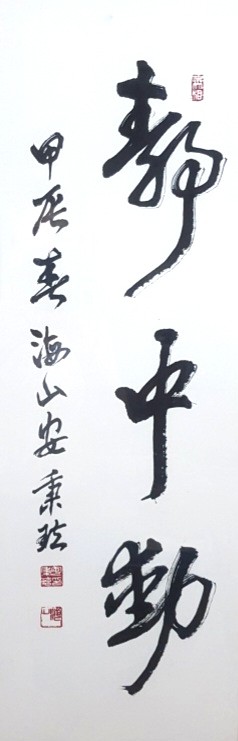 靜中動
甲辰春 海山 安秉玹